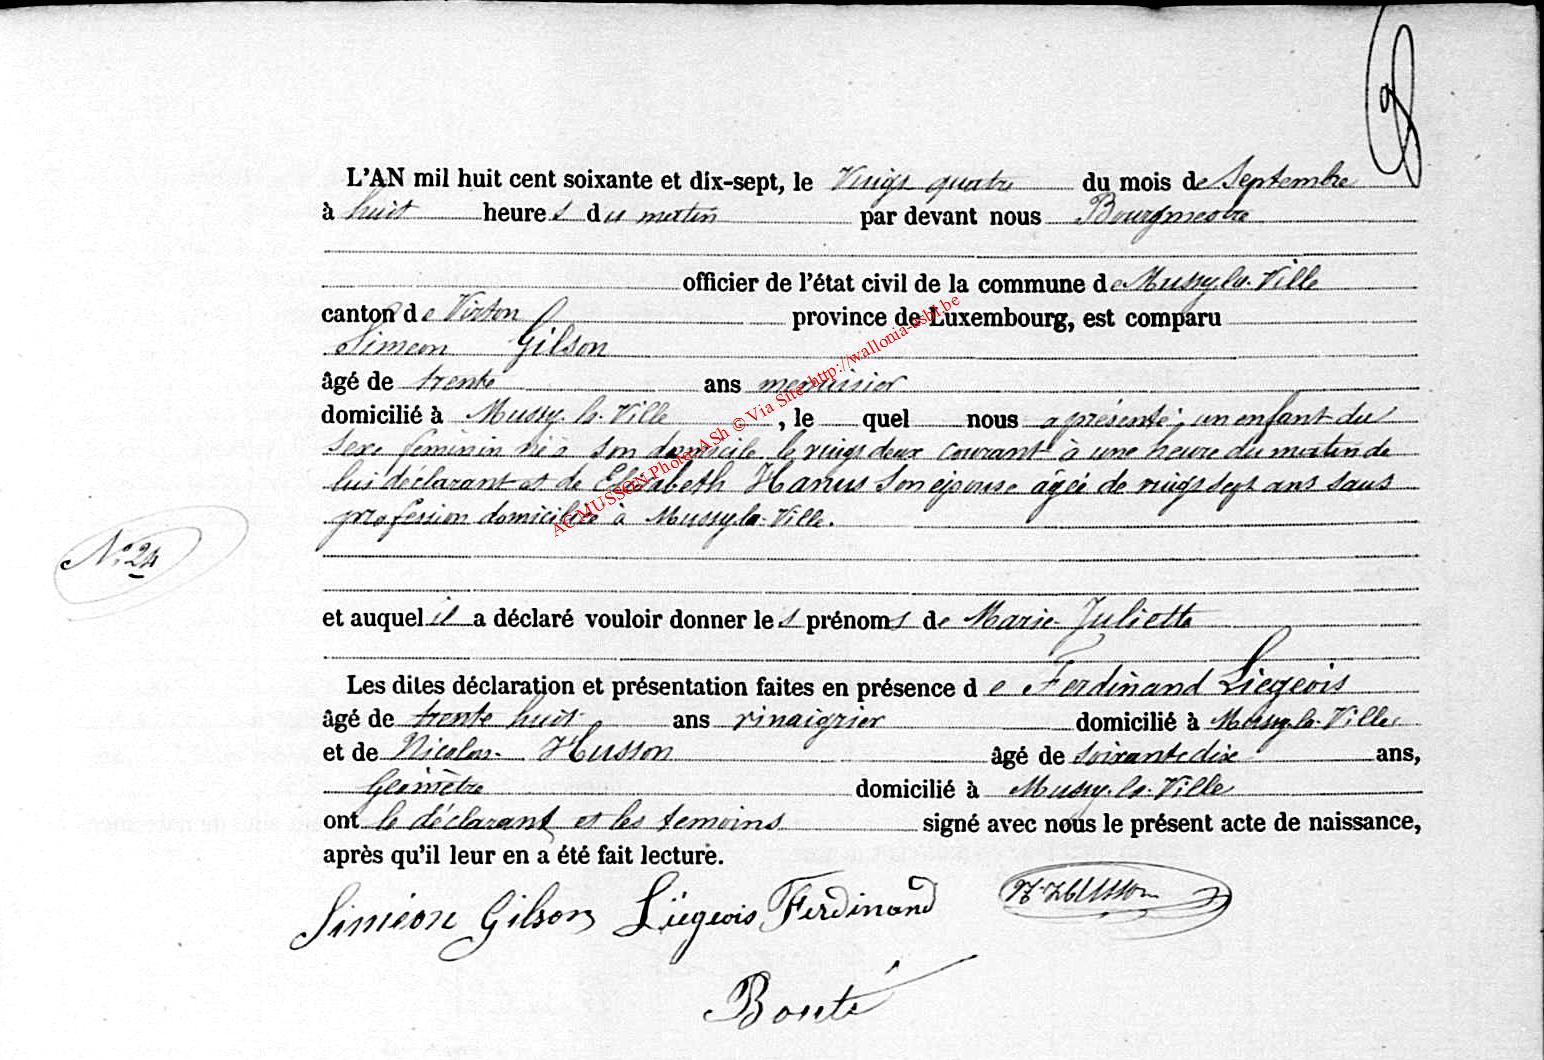 L'AN mil huit cent soixante et dix-sept, le Vingt quatre du mois de Septembre
à huit heures du matin par devant nous Bourgmestre
officier de l'état civil de la commune de Mussy-la-Ville
canton de Virton province de Luxembourg, est comparu
Siméon Gilson
âgé de trente ans menuisier
domicilié à Mussy-la-Ville, le quel nous a présenté un enfant du
sexe féminin né à son domicile le vingt deux courant à une heure du matin de
lui déclarant et de Elisabeth Hanus son épouse âgée de vingt sept ans sans
profession domiciliée à Mussy-la-Ville.
N° 24
et auquel il a déclaré vouloir donner les prénoms de Marie-Juliette
Les dites déclaration et présentation faites en présence de Ferdinand Liégeois
âgé de trente huit ans vinaigrier domicilié à Mussy-la-Ville
et de Nicolas Husson âgé de soixante dix ans,
Géomètre domicilié à Mussy-la-Ville
ont le déclarant et les témoins signé avec nous le présent acte de naissance,
après qu'il leur en a été fait lecture.
Siméon Gilson Liégeois Ferdinand N. Husson
Bonté
AC MUSSON Photo ASh © Via Site http://wallonia-asbl.be